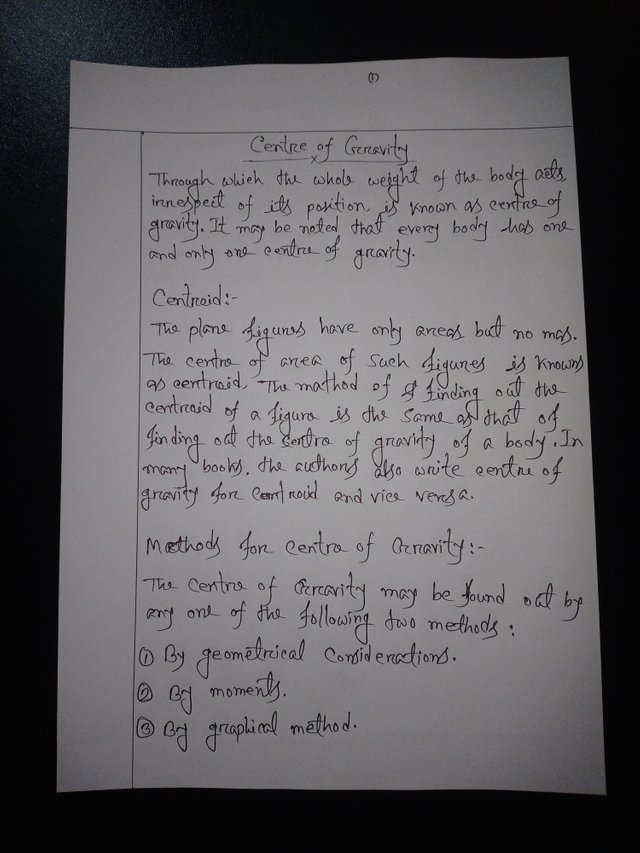 ①
Centre of Gravity
Through which the whole weight of the body acts,
irrespect of its position, is known as centre of
gravity. It may be noted that every body has one
and only one centre of gravity.
Centroid:-
The plane figures have only areas but no mas.
The centre of area of such figures is knowns
as centroid. The mathod of finding out the
centroid of a figure is the same as that of
finding out the centre of gravity of a body. In
many books. the authors also write centre of
gravity for centroid and vice versa.
Methods for centre of Gravity:-
The centre of Gravity may be found out by
any one of the following two methods :
① By geometrical considerations.
② By moments.
③ By graphical method.